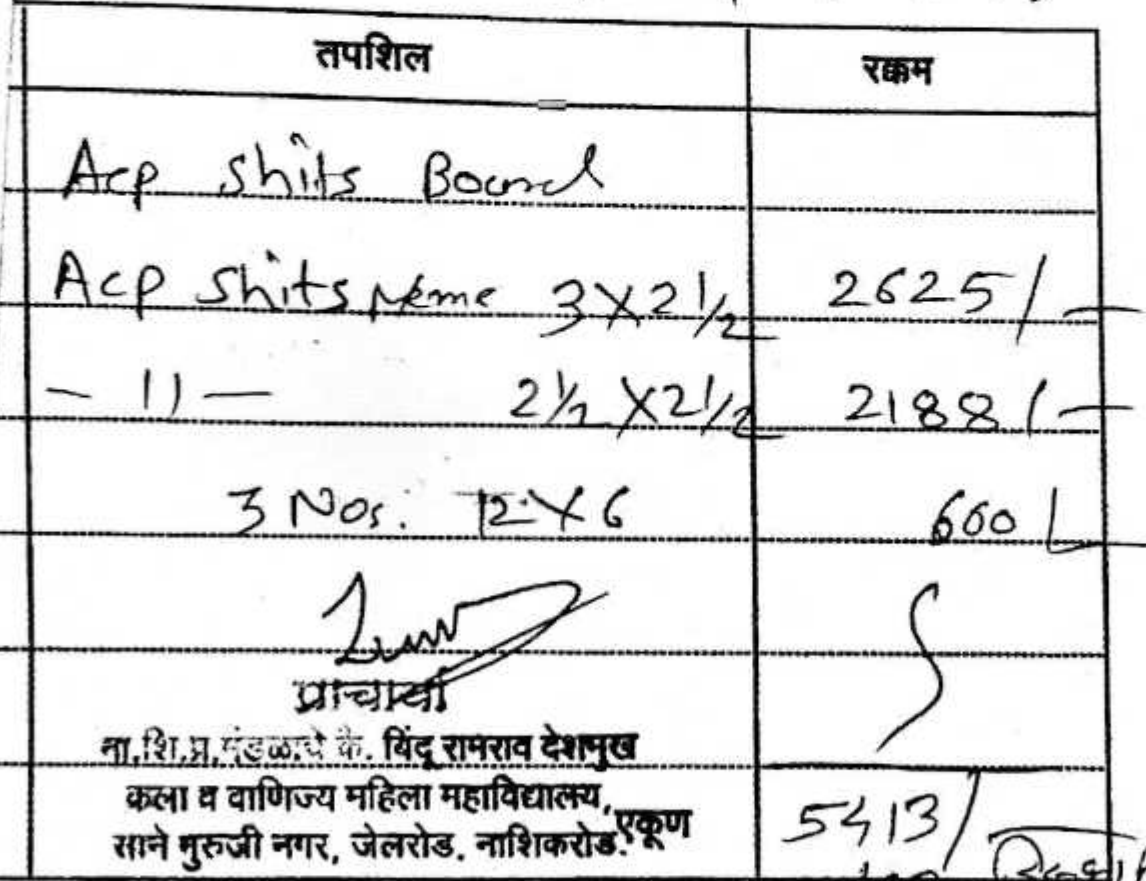 तपशिल रक्कम
Acp Shits Board
Acp Shits Neme 3X2 1/2 2625/-
- 11 - 2 1/2 X2 1/2 2188/-
3 Nos. 12X6 600/-
प्राचार्या
ना.शि.प्र.मंडळाचे कै. बिंदू रामराव देशमुख
कला व वाणिज्य महिला महाविद्यालय,
साने गुरुजी नगर, जेलरोड. नाशिकरोड. एकूण 5413/-